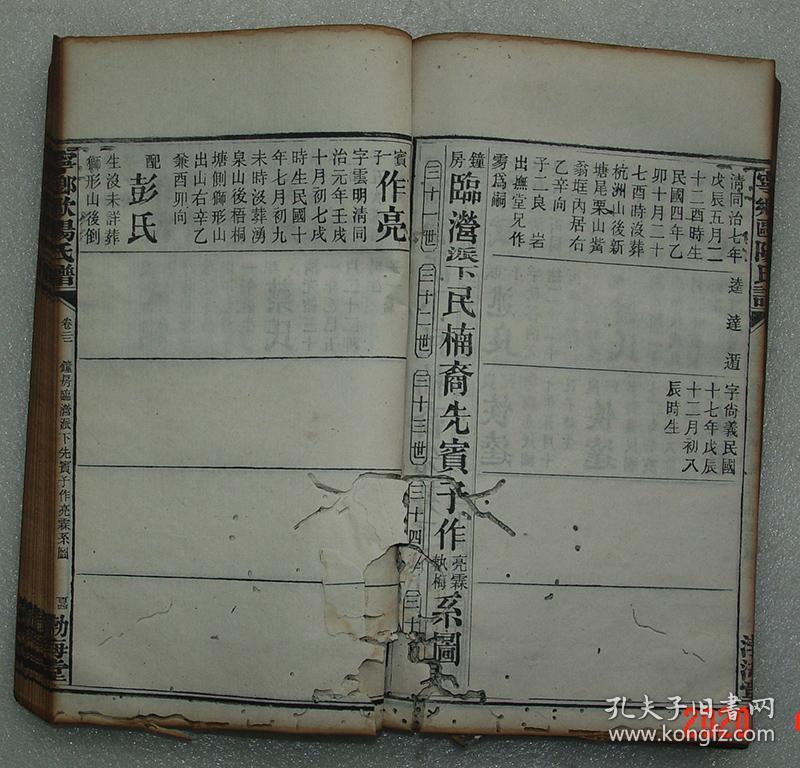 清同治七年
戊辰五月二
十二酉時生
民國四年乙
卯十月二十
七酉時沒葬
杭洲山後新
塘尾栗山觜
翁塋內居右
乙辛向
子二良 岩
出撫堂兄作
霧爲嗣
逵
達
遁
字尙義民國
十七年戊辰
十二月初八
辰時生
鐘房
臨澬派下民楠裔先賓子作
亮霖
執梅
系圖
三十一世
三十二世
三十三世
三十四
賓子一
作亮
字雲明清同
治元年壬戌
十月初七戌
時生民國十
年七月初九
未時沒葬湧
泉山後梧桐
塘側獅形山
出山右辛乙
兼酉卯向
配彭氏
生沒未詳葬
獅形山後倒
寧鄉歐陽氏譜
卷三
鐘房臨澬派下先賓子作亮霖系圖
渤海堂
孔夫子旧书网
www.kongfz.com
2020